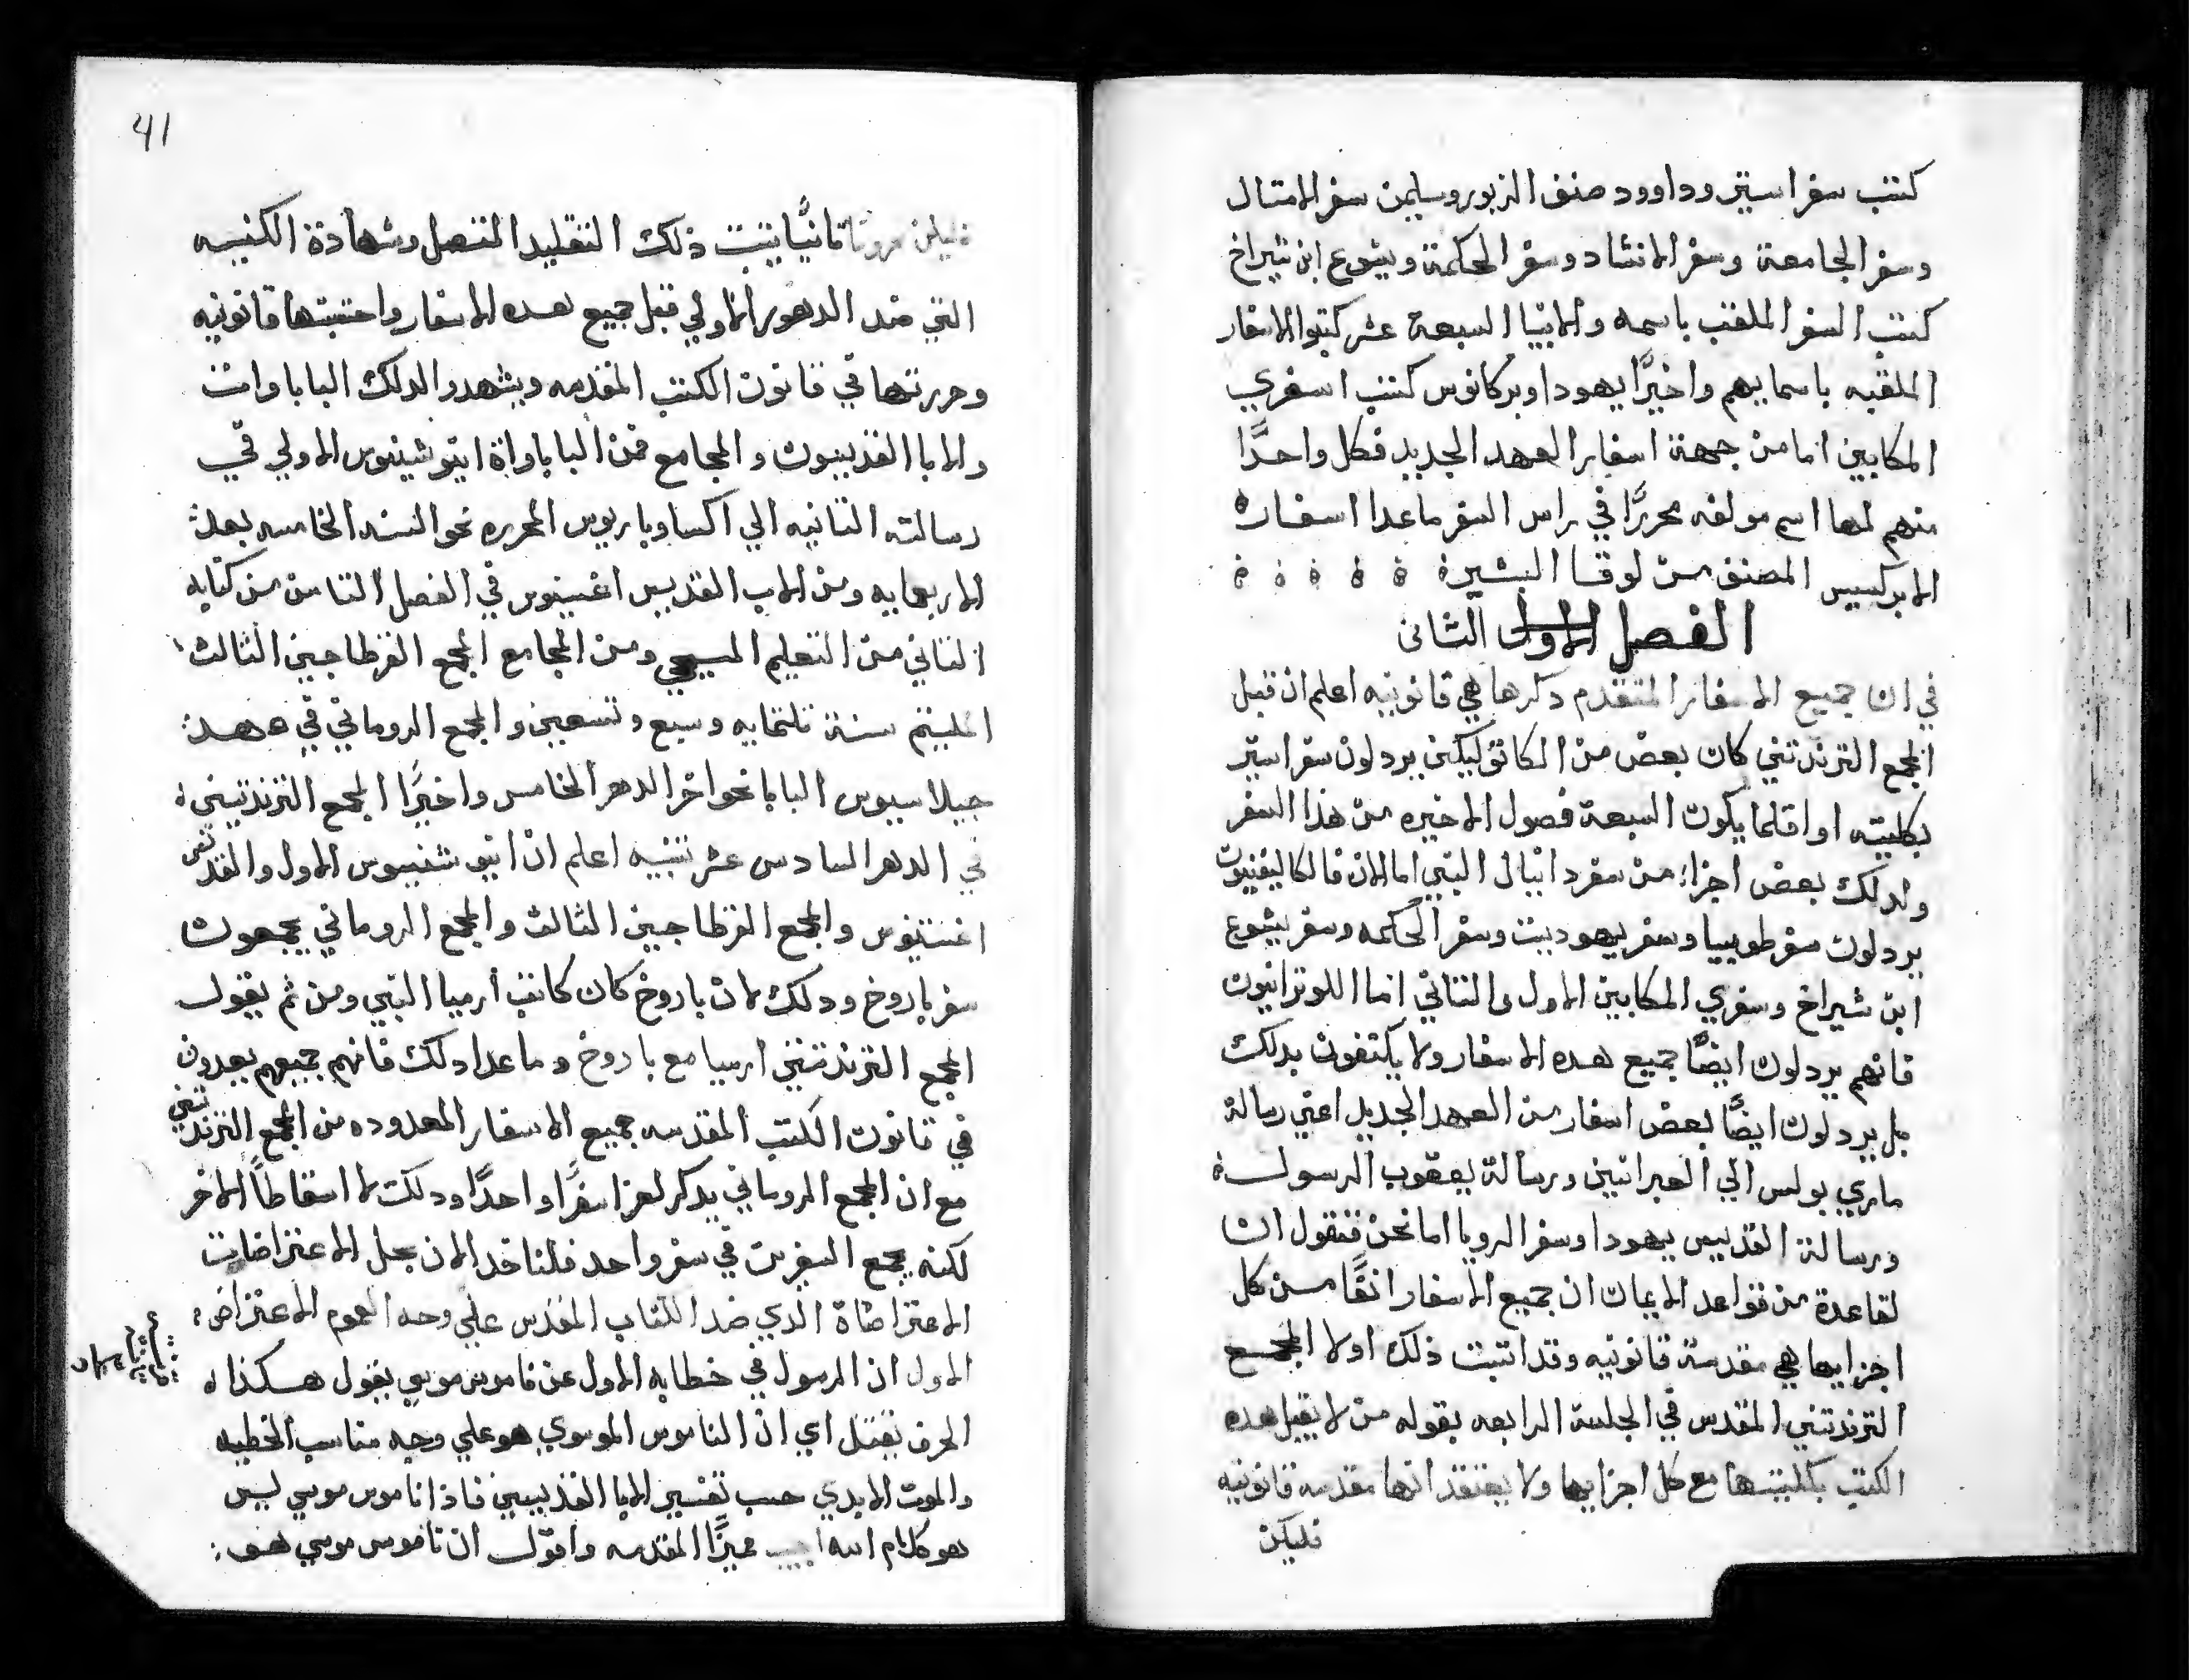 كتب سفر استير وداوود صنف الزبور وسليمن سفر الامتال
وسفر الجامعة وسفر الانشاد وسفر الحكمة ويشوع ابن شيراخ
كتب السفر الملقب باسمه والانبيا السبعة عشر كتبوا الاسفار
الملقبه باسمايهم واخيرًا يهودا وبركانوس كتب اسفري
المكابيين اما من جهة اسفار العهد الجديد فكل واحدًا
منهم لها اسم مولفه محررًا في راس السفر ماعدا اسفاره
الابركسيس المصنف من لوقا البشير
الفصل الاول الثانى
في ان جميع الاسفار المتقدم دكرها هي قانونيه اعلم ان قبل
المجمع التريدنتيني كان بعض من الكاتوليكيين يردلون سفر استير
بكليته او اقلما يكون السبعة فصول الاخيره من هذا السفر
ولدلك بعض اجزاء من سفر دانيال النبي اما الان فالكالفينيون
يردلون سفر طوبيا وسفر يهوديت وسفر الحكمه وسفر يشوع
ابن شيراخ وسفري المكابيين الاول والتاني اما اللوترانيون
فانهم يردلون ايضًا جميع هده الاسفار ولا يكتفون بدلك
بل يردلون ايضًا بعض اسفار من العهد الجديد اعني رسالة
ماري بولس الي العبرانيين ورسالة يعقوب الرسول
ورسالة القديس يهودا وسفر الرويا اما نحن فنقول ان
لقاعدة من قواعد الايمان ان جميع الاسفار انفًا من كل
اجزايها هي مقدسة قانونيه وقد اتبت ذلك اولا المجمع
التريدنتيني المقدس في الجلسة الرابعه بقوله من لا يقبل هده
الكتب بكليتها مع كل اجزايها ولا يعتقد انها مقدسه قانونيه
فليكن
41
فليكن محرومًا تانيًا يتبت ذلك التقليد المتصل وشهادة الكنيسه
التي مند الدهور الاولي قبل جميع هده الاسفار واحتسبتها قانونيه
وحررتها في قانون الكتب المقدسه ويشهدوا لدلك الباباوات
والابا القديسون والمجامع فمن الباباواة اينوشينسيوس الاولي في
رسالته التانيه الي اكساوباريوس المحرره نحو السنه الخامسه بعد
الاربعمايه ومن الاب القديس اغستينوس في الفصل التامن من كتابه
التاني من التعليم المسيحي ومن المجامع المجمع القرطاجيني الثالث
الملتيم سنة تلتمايه وسبع وتسعين والمجمع الروماني في عهد
جيلاسيوس البابا نحو اخر الدهر الخامس واخيرًا المجمع التريدنتيني
في الدهر السادس عشر تنبيه اعلم ان اينوشنسيوس الاول والقديس
اغستينوس والمجمع القرطاجيني الثالث والمجمع الروماني يجمعون
سفر باروخ ودلك لان باروخ كان كاتب أرميا النبي ومن ثم يقول
المجمع التريدنتيني ارميا مع باروخ وماعدا دلك فانهم جميعهم يعدون
في قانون الكتب المقدسه جميع الاسفار المعدوده من المجمع التريدنتيني
مع ان المجمع الروماني يدكر لعزرا سفرًا واحدًا ودلك لا اسقاطًا الاخر
لكنه يجمع السفرين في سفر واحد فلناخد الان بحل الاعتراضات
الاعتراضاة الدي ضد الكتاب المقدس علي وجه العموم الاعتراض
الاول ان الرسول في خطابه الاول عن ناموس موسي يقول هكذا
الحرف يقتل اي ان الناموس الموسوي هو علي وجه مناسب الخطيه
والموت الابدي حسب تفسير الابا القديسيين فاذا ناموس موسي ليس
هو كلام الله اجيب مميزًا المقدسه واقول ان ناموس موسي هو